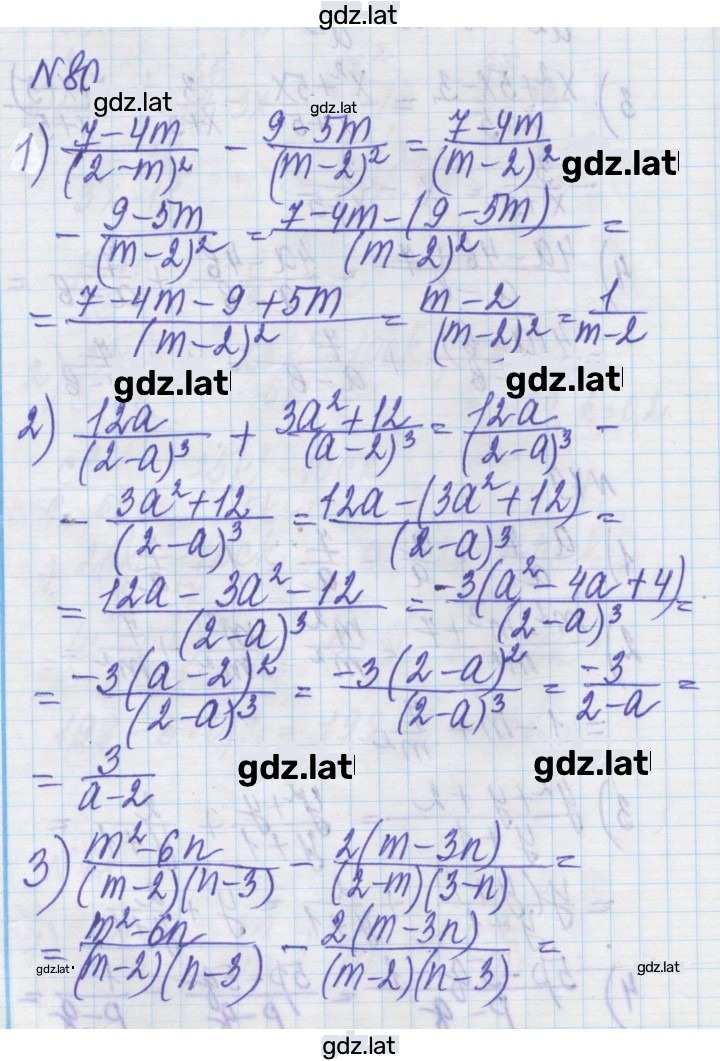 gdz.lat
N 80
gdz.lat gdz.lat
1) (7-4m)/(2-m)² - (9-5m)/(m-2)² = (7-4m)/(m-2)² gdz.lat
- (9-5m)/(m-2)² = (7-4m-(9-5m))/(m-2)² =
= (7-4m-9+5m)/(m-2)² = (m-2)/(m-2)² = 1/(m-2)
gdz.lat gdz.lat
2) 12a/(2-a)³ + (3a²+12)/(a-2)³ = 12a/(2-a)³ -
- (3a²+12)/(2-a)³ = (12a-(3a²+12))/(2-a)³ =
= (12a-3a²-12)/(2-a)³ = -3(a²-4a+4)/(2-a)³ =
= -3(a-2)²/(2-a)³ = -3(2-a)²/(2-a)³ = -3/(2-a) =
= 3/(a-2) gdz.lat gdz.lat
3) (m²-6n)/(m-2)(n-3) - 2(m-3n)/(2-m)(3-n) =
= (m²-6n)/(m-2)(n-3) - 2(m-3n)/(m-2)(n-3) =
gdz.lat gdz.lat
gdz.lat